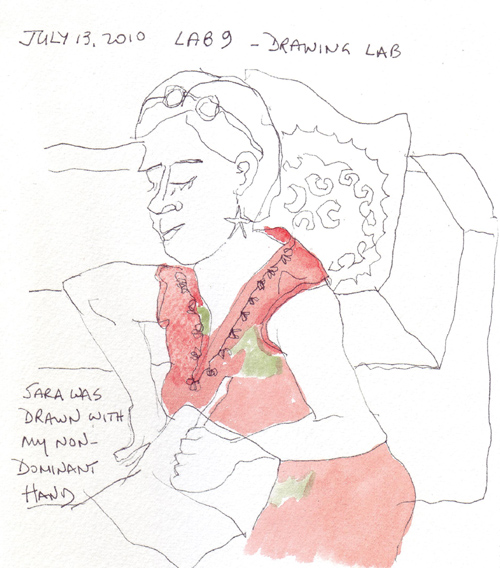 JULY 13, 2010 LAB 9 - DRAWING LAB
SARA WAS
DRAWN WITH
MY NON-
DOMINANT
HAND